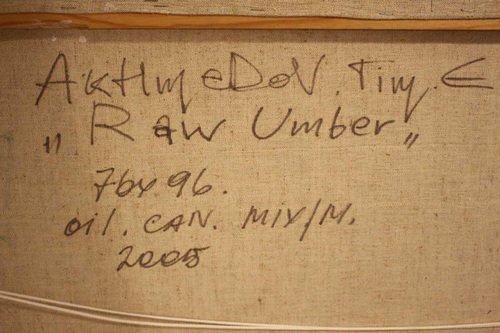 AKHmeDoV. Tim. E
„ Raw Umber „
76x96.
oil. CAN. MIX/M.
2005